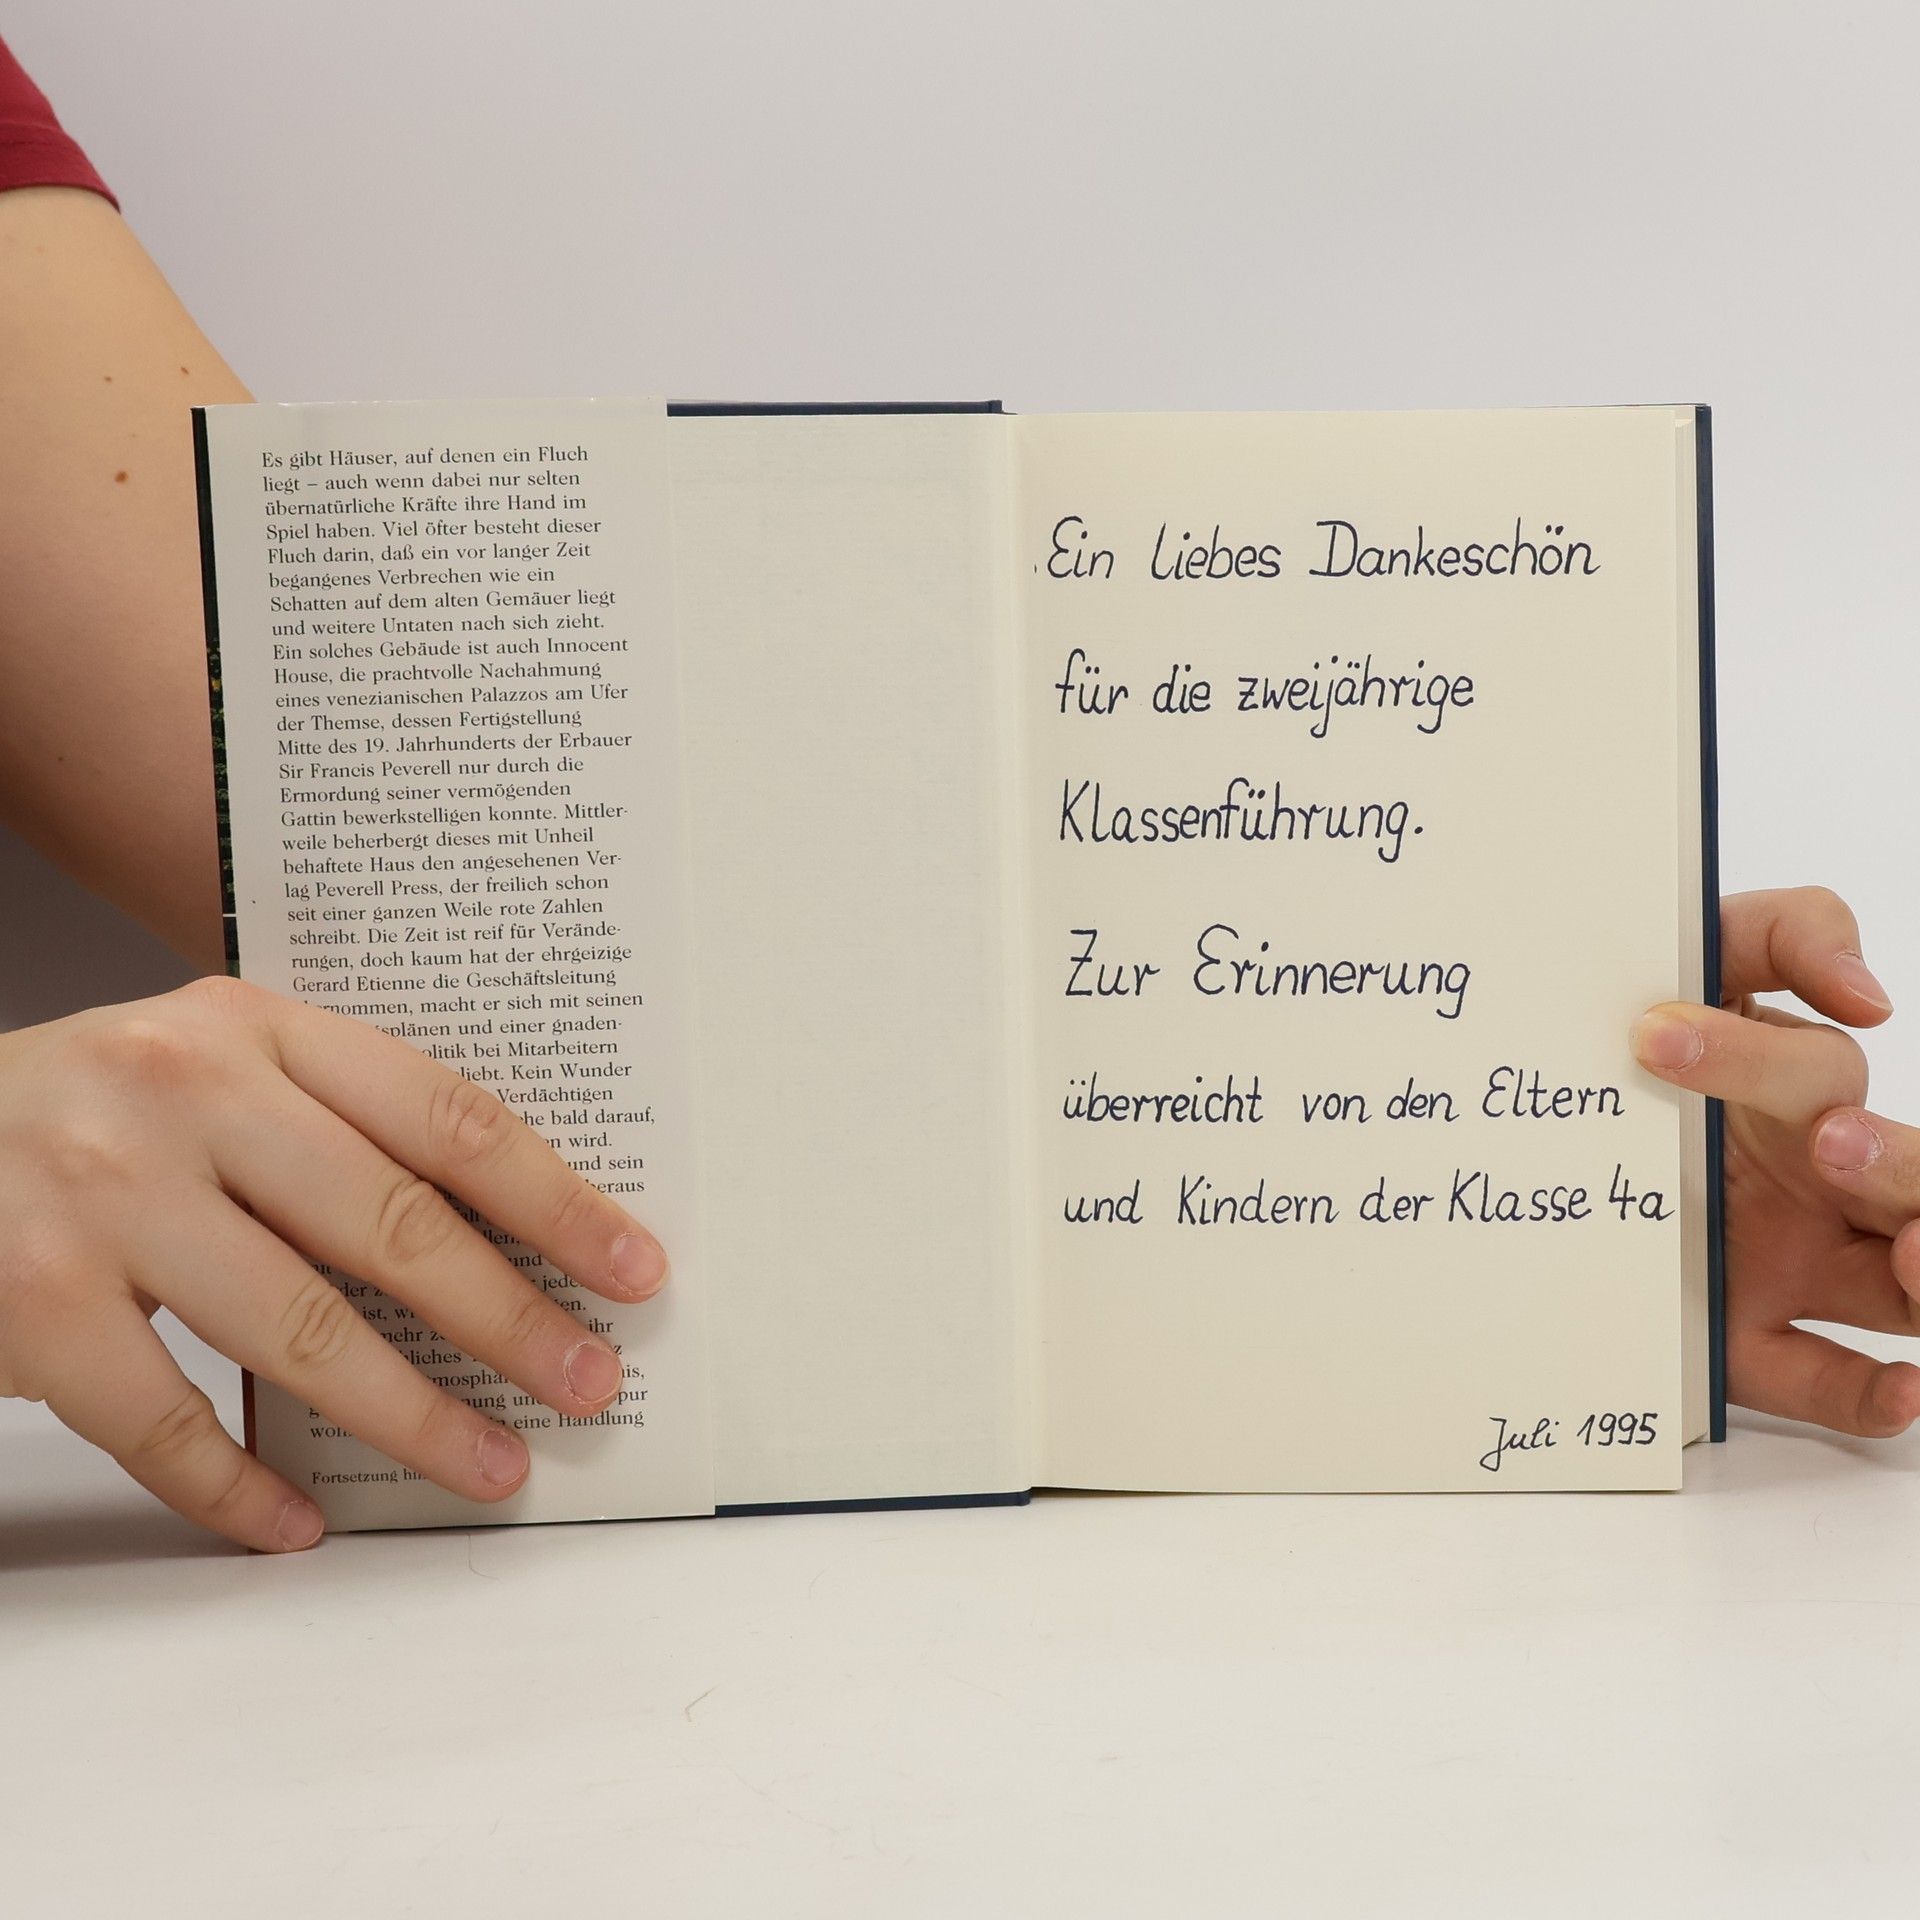 Es gibt Häuser, auf denen ein Fluch
liegt – auch wenn dabei nur selten
übernatürliche Kräfte ihre Hand im
Spiel haben. Viel öfter besteht dieser
Fluch darin, daß ein vor langer Zeit
begangenes Verbrechen wie ein
Schatten auf dem alten Gemäuer liegt
und weitere Untaten nach sich zieht.
Ein solches Gebäude ist auch Innocent
House, die prachtvolle Nachahmung
eines venezianischen Palazzos am Ufer
der Themse, dessen Fertigstellung
Mitte des 19. Jahrhunderts der Erbauer
Sir Francis Peverell nur durch die
Ermordung seiner vermögenden
Gattin bewerkstelligen konnte. Mittler-
weile beherbergt dieses mit Unheil
behaftete Haus den angesehenen Ver-
lag Peverell Press, der freilich schon
seit einer ganzen Weile rote Zahlen
schreibt. Die Zeit ist reif für Verände-
rungen, doch kaum hat der ehrgeizige
Gerard Etienne die Geschäftsleitung
macht er sich mit seinen
und einer gnaden-
bei Mitarbeitern
Kein Wunder
Verdächtigen
bald darauf,
wird.
und sein
ist,
ihr
eine Handlung
Fortsetzung
Ein liebes Dankeschön
für die zweijährige
Klassenführung.
Zur Erinnerung
überreicht von den Eltern
und Kindern der Klasse 4a
Juli 1995